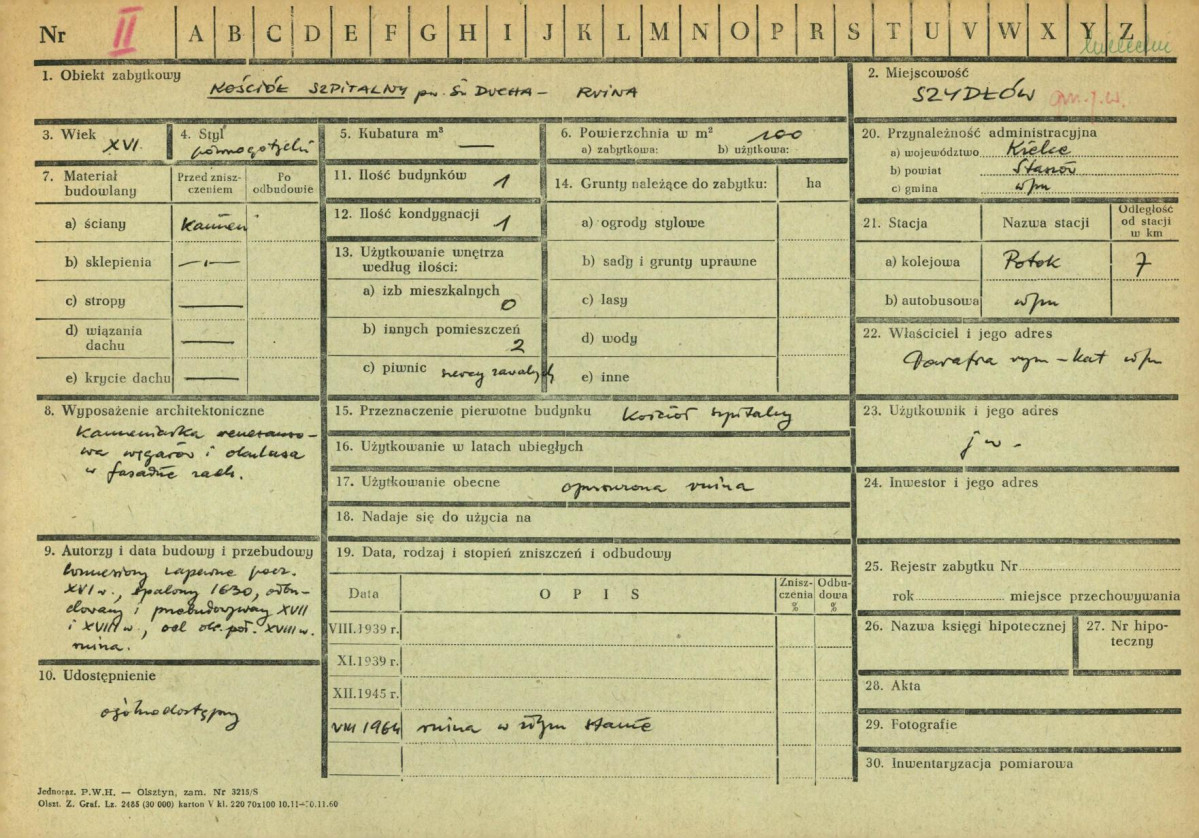 Nr II A B C D E F G H I J K L M N O P R S T U V W X Y Z
1. Obiekt zabytkowy
KOŚCIÓŁ SZPITALNY pw. Św DUCHA – RUINA
2. Miejscowość
SZYDŁÓW
3. Wiek
XVI
4. Styl
późnogotycki
5. Kubatura m³
—
6. Powierzchnia w m² 200
a) zabytkowa: b) użytkowa:
7. Materiał budowlany
Przed zniszczeniem
Po odbudowie
a) ściany kamień
b) sklepienia —"—
c) stropy —
d) wiązania dachu —
e) krycie dachu —
8. Wyposażenie architektoniczne
kamieniarka renesanso-
wa węgarów i okulusa
w fasadzie zach.
9. Autorzy i data budowy i przebudowy
wzniesiony zapewne pocz.
XVI w., spalony 1630, odbu-
dowany i przebudowywany XVII
i XVIII w., od ok. poł. XVIII w.
ruina.
10. Udostępnienie
ogólnodostępny
11. Ilość budynków 1
12. Ilość kondygnacji 1
13. Użytkowanie wnętrza
według ilości:
a) izb mieszkalnych
0
b) innych pomieszczeń
2
c) piwnic
14. Grunty należące do zabytku: ha
a) ogrody stylowe
b) sady i grunty uprawne
c) lasy
d) wody
e) inne
15. Przeznaczenie pierwotne budynku kościół szpitalny
16. Użytkowanie w latach ubiegłych
17. Użytkowanie obecne opuszczona ruina
18. Nadaje się do użycia na
19. Data, rodzaj i stopień zniszczeń i odbudowy
Data O P I S Zniszczenia % Odbudowa %
VIII.1939 r.
XI.1939 r.
XII.1945 r.
VIII 1964 ruina w złym stanie
20. Przynależność administracyjna
a) województwo Kielce
b) powiat Staszów
c) gmina w/m
21. Stacja Nazwa stacji Odległość od stacji w km
a) kolejowa Potok 7
b) autobusowa w/m
22. Właściciel i jego adres
Parafia rzym-kat w/m
23. Użytkownik i jego adres
j w -
24. Inwestor i jego adres
25. Rejestr zabytku Nr
rok miejsce przechowywania
26. Nazwa księgi hipotecznej
27. Nr hipo-
teczny
28. Akta
29. Fotografie
30. Inwentaryzacja pomiarowa
Jednoraz. P.W.H. — Olsztyn, zam. Nr 3215/S
Olszt. Z. Graf. Lz. 2485 (30 000) karton V kl. 220 70x100 10.11—30.11.60